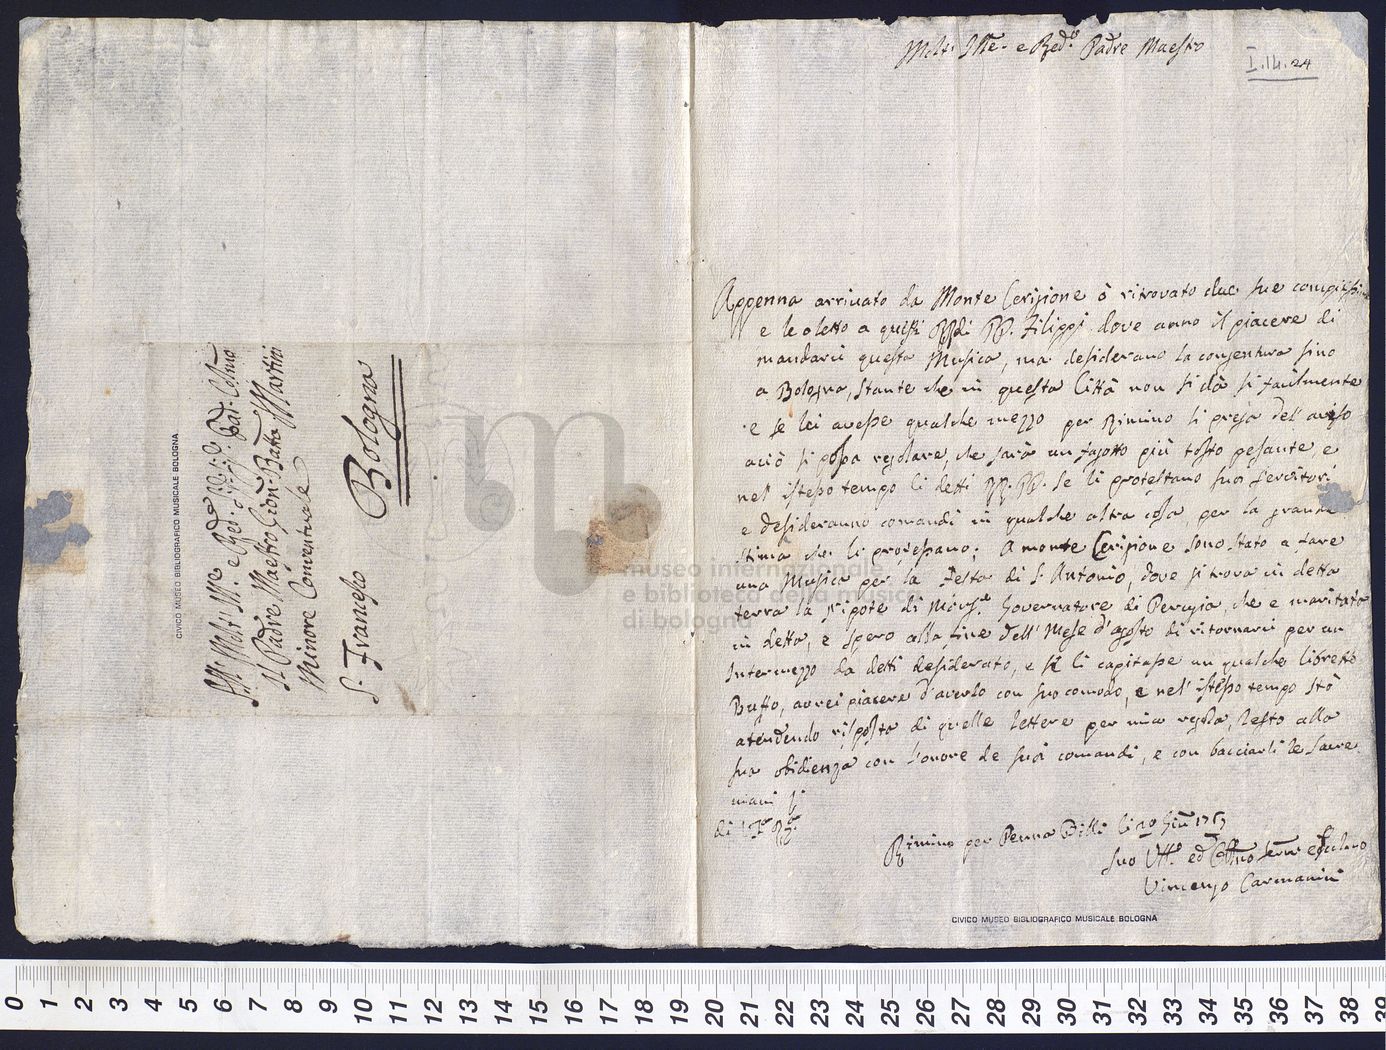 Molt' Ill.re e Rev.do Padre Maestro
I.14.24
Appenna arrivato da Monte Cerignone ò ritrovato due sue
e le o letto a quisti PP. Filippi dove anno il piacere di
mandarii questa Musica, ma desiderano la congentura sino
a Bologna, stante che in questa Città non si dà si facilmente
e se lei avesse qualche mezzo per Rimino si prega dell'aviso
aciò si possa regolare, che sarà un fagotto più tosto pesante, e
nel istesso tempo li detti RR. PP. se li protestano suoi servitori
e desideranno comandi in qualche altra cosa, per la grande
stima che li professano; A monte Cerignone sono stato a fare
una Musica per la Festa di S. Antonio, dove si trova in detta
terra la nipote di Monsg.e Governatore di Perugia, che e maritata
in detta, e spero alla fine dell'Mese d'agosto di ritornarii per un
Intermezzo da detti desiderato, e se li capitasse un qualche libretto
Buffo, avrei piacere d'averlo con suo comodo, e nel' istesso tempo stò
atendendo risposta di quelle lettere per mia regola, resto alla
sua obidienza con l'onore de suoi comandi, e con bacciarli le sacre
mani li
di
Rimino per Penna Billi li 20 Giu.o 1757
Suo ed servo
Vincenzo Carmanini
CIVICO MUSEO BIBLIOGRAFICO MUSICALE BOLOGNA
Al Molt' Ill.re e Rev.do
Il Padre Maestro Gion: Batta Martini
Minore Conventuale
S. Francesco Bologna
CIVICO MUSEO BIBLIOGRAFICO MUSICALE BOLOGNA
museo internazionale
e biblioteca della musica
di bologna
0 1 2 3 4 5 6 7 8 9 10 11 12 13 14 15 16 17 18 19 20 21 22 23 24 25 26 27 28 29 30 31 32 33 34 35 36 37 38 39